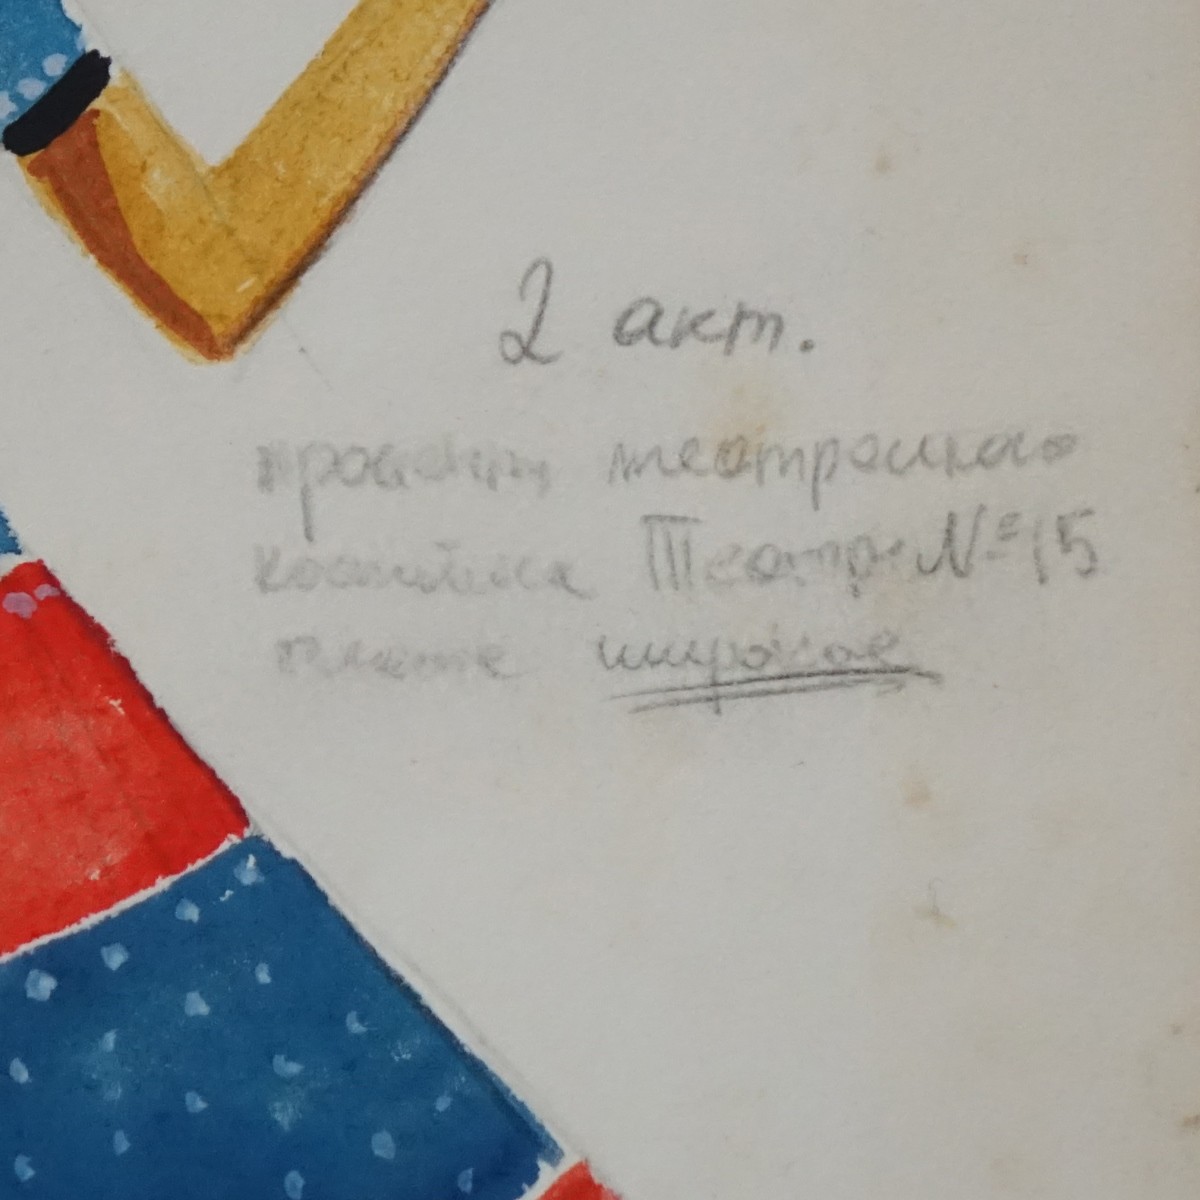 2 акт.
театрального
костюма Театр №15
платье широкое